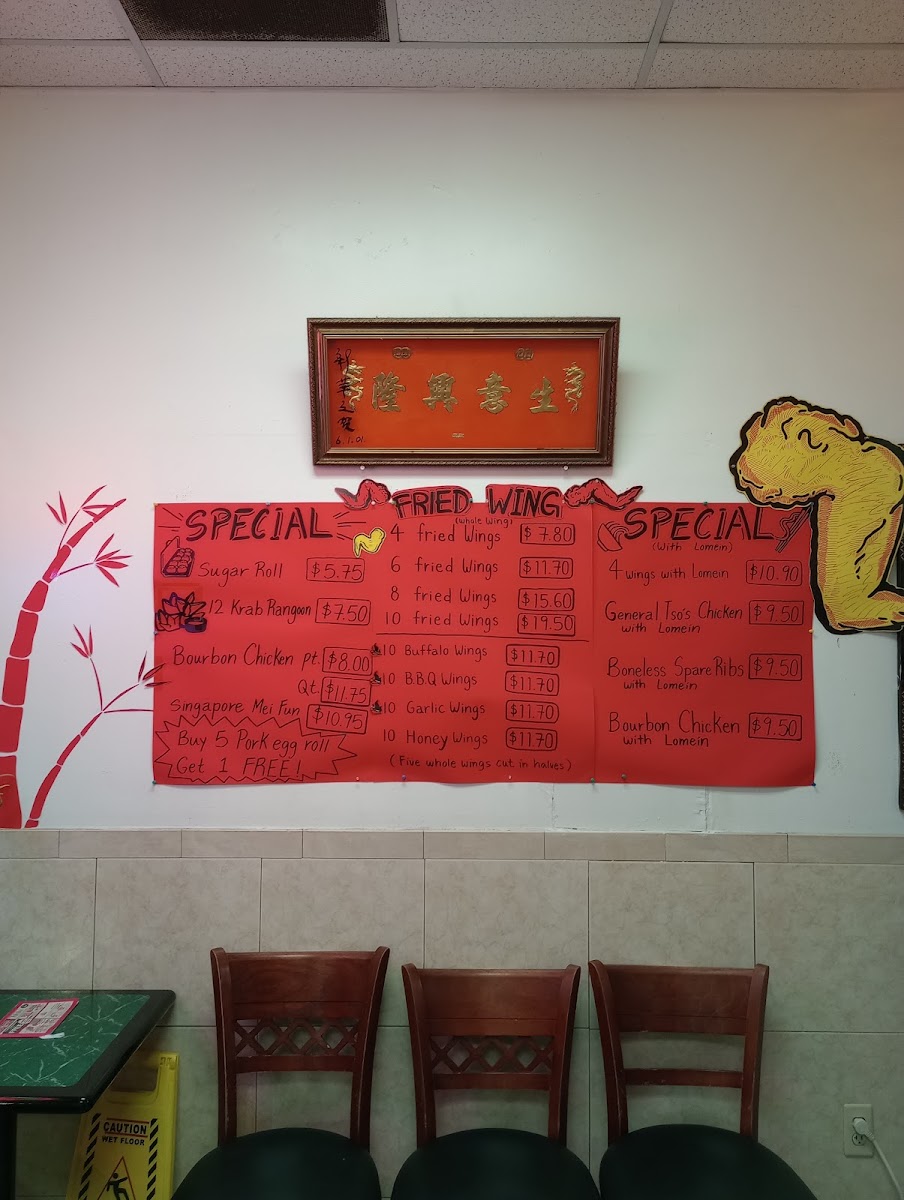 隆興意生
6.1.01.
SPECIAL
Sugar Roll $5.75
12 Krab Rangoon $7.50
Bourbon Chicken pt. $8.00
Qt. $11.75
Singapore Mei Fun $10.95
Buy 5 Pork egg roll
Get 1 FREE!
FRIED WING
(whole wing)
4 fried Wings $7.80
6 fried Wings $11.70
8 fried Wings $15.60
10 fried Wings $19.50
10 Buffalo Wings $11.70
10 B.B.Q Wings $11.70
10 Garlic Wings $11.70
10 Honey Wings $11.70
(Five whole wings cut in halves)
SPECIAL
(With Lomein)
4 wings with Lomein $10.90
General Tso's Chicken $9.50
with Lomein
Boneless Spare Ribs $9.50
with Lomein
Bourbon Chicken $9.50
with Lomein
CAUTION
WET FLOOR